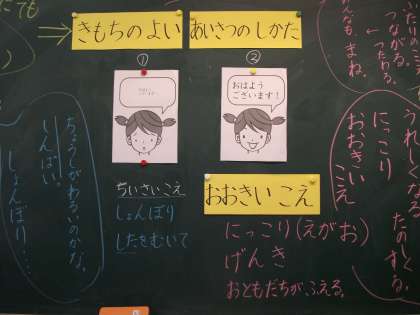 きもちのよい あいさつの しかた
①
②
おはよう
ございます！
ちいさいこえ
しょんぼり
したをむいて
おおきい こえ
にっこり(えがお)
げんき
おともだちがふえる。
つながる。
つたわる。
みんなも まね。
うれしくなる
たのしくなる
にっこり
おおきいこえ
ちょうしがわるいのかな。
しんぱい。
しょんぼり…
ても